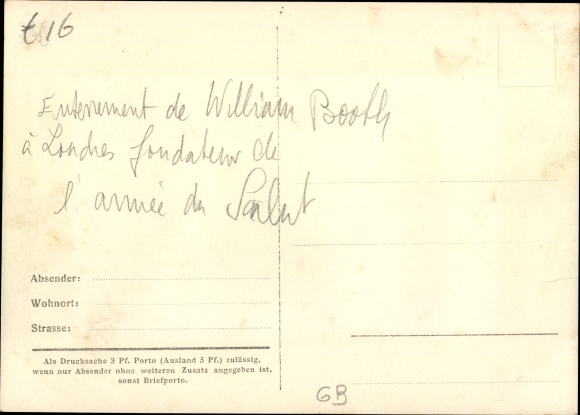 £16
Enterrement de William Booth
à Londres fondateur de
l'armée du Salut
Absender:
Wohnort:
Strasse:
Als Drucksache 3 Pf. Porto (Ausland 5 Pf.) zulässig,
wenn nur Absender ohne weiteren Zusatz angegeben ist,
sonst Briefporto.
GB